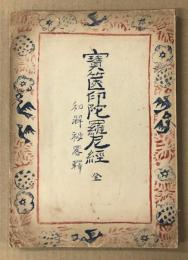 寶篋印陀羅尼經 全
和解秘略釋